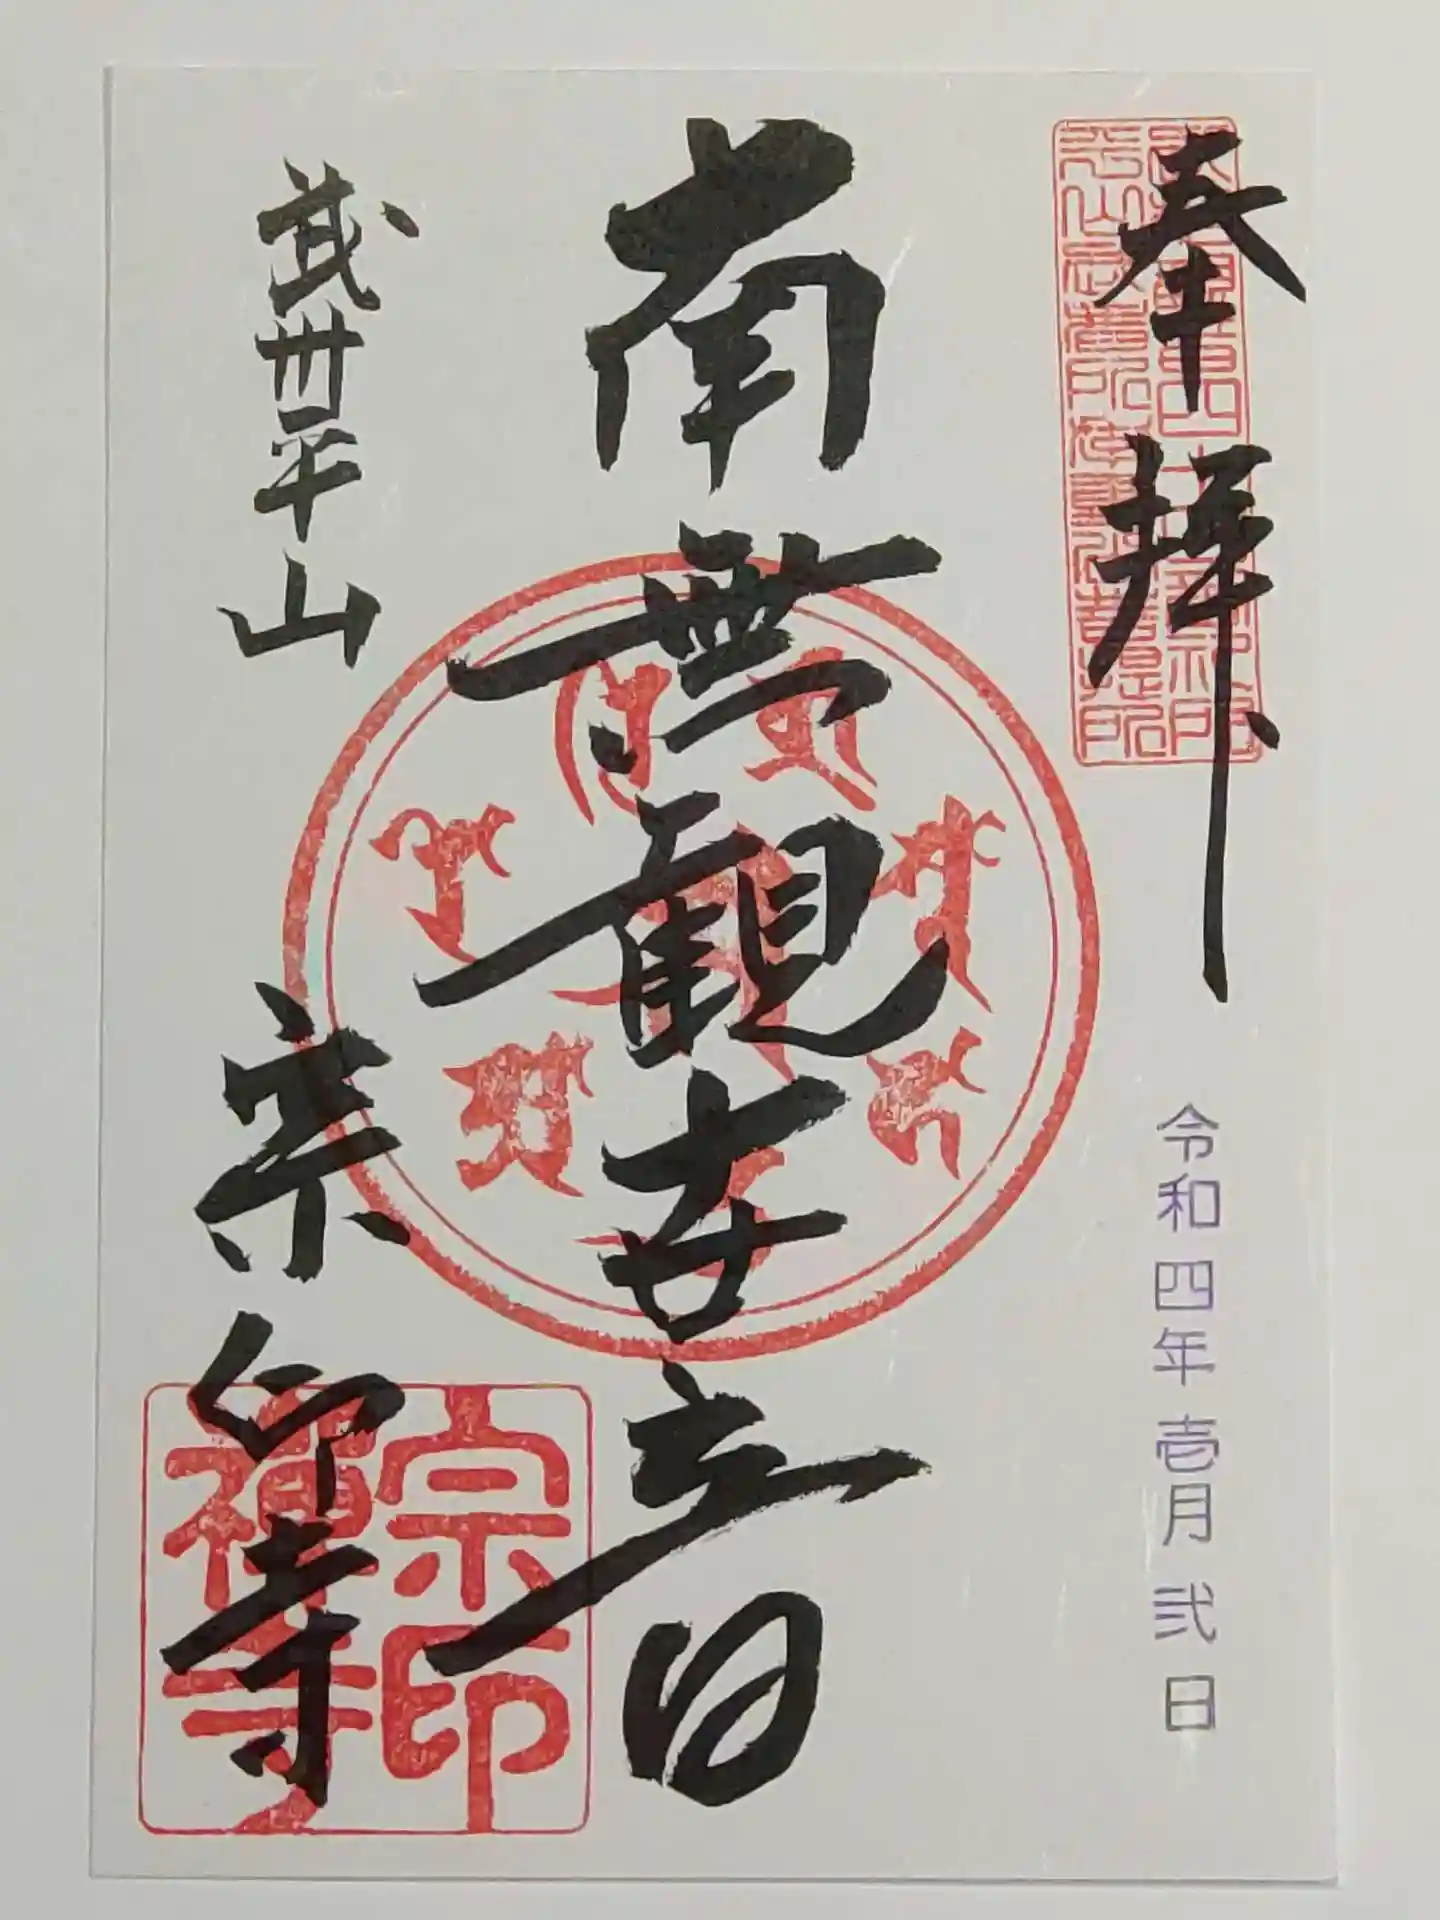 奉拝
令和四年 壱月 弐日
南無観世音
武州平山
宗印寺
宗印
禅寺